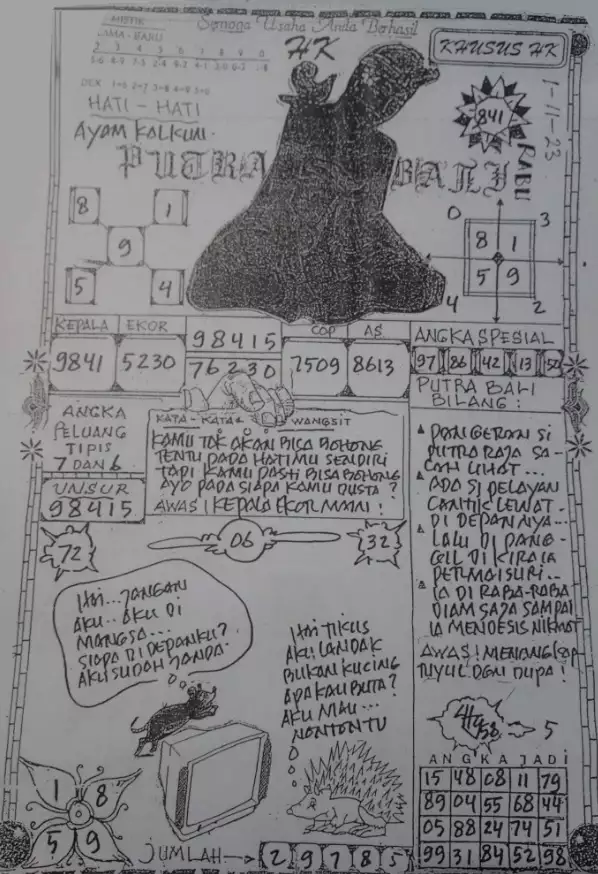 Semoga Usaha Anda Berhasil
MISTIK
LAMA - BARU
2 3 4 5 6 7 8 9 0
HK
KHUSUS HK
HATI - HATI
AYAM KALKUN.
841
1-11-23
RABU
PUTRA BALI
8 1
9
5 4
0 3
8 1
5 9
4 2
KEPALA EKOR
9841 5230
98415
76230
COP AS
7509 8613
ANGKA SPESIAL
97 86 42 13 50
ANGKA
PELUANG
TIPIS
7 DAN 6
UNSUR
98415
KATA - KATA WANGSIT
KAMU TAK AKAN BISA BOHONG
TENTU PADA HATIMU SENDIRI
TAPI KAMU PASTI BISA BOHONG
AYO PADA SIAPA KAMU DUSTA ?
AWAS ! KEPALA EKOR MAIN !
PUTRA BALI
BILANG :
PANGERAN SI
PUTRA RAJA SA-
LAH LIHAT ...
ADA SI PELAYAN
CANTIK LEWAT -
DI DEPANNYA...
LALU DI PANG-
GIL DI KIRA IA
PERMAISURI..
IA DI RABA-RABA
DIAM SAJA SAMPAI
IA MENDESIS NIKMAT
AWAS ! MENANGKAP
TUYUL DGN DUPA !
72
06
32
HAI... JANGAN
AKU.. AKU DI
MANGSA...
SIAPA DI DEPANKU?
AKU SUDAH JANDA.
HAI TIKUS
AKU LANDAK
BUKAN KUCING
APA KAU BUTA?
AKU MAU ...
NONTON TV
5
ANGKA JADI
15 48 08 11 79
89 04 55 68 44
05 88 24 74 51
99 31 84 52 98
1 8
5 9
JUMLAH → 2 9 7 8 5